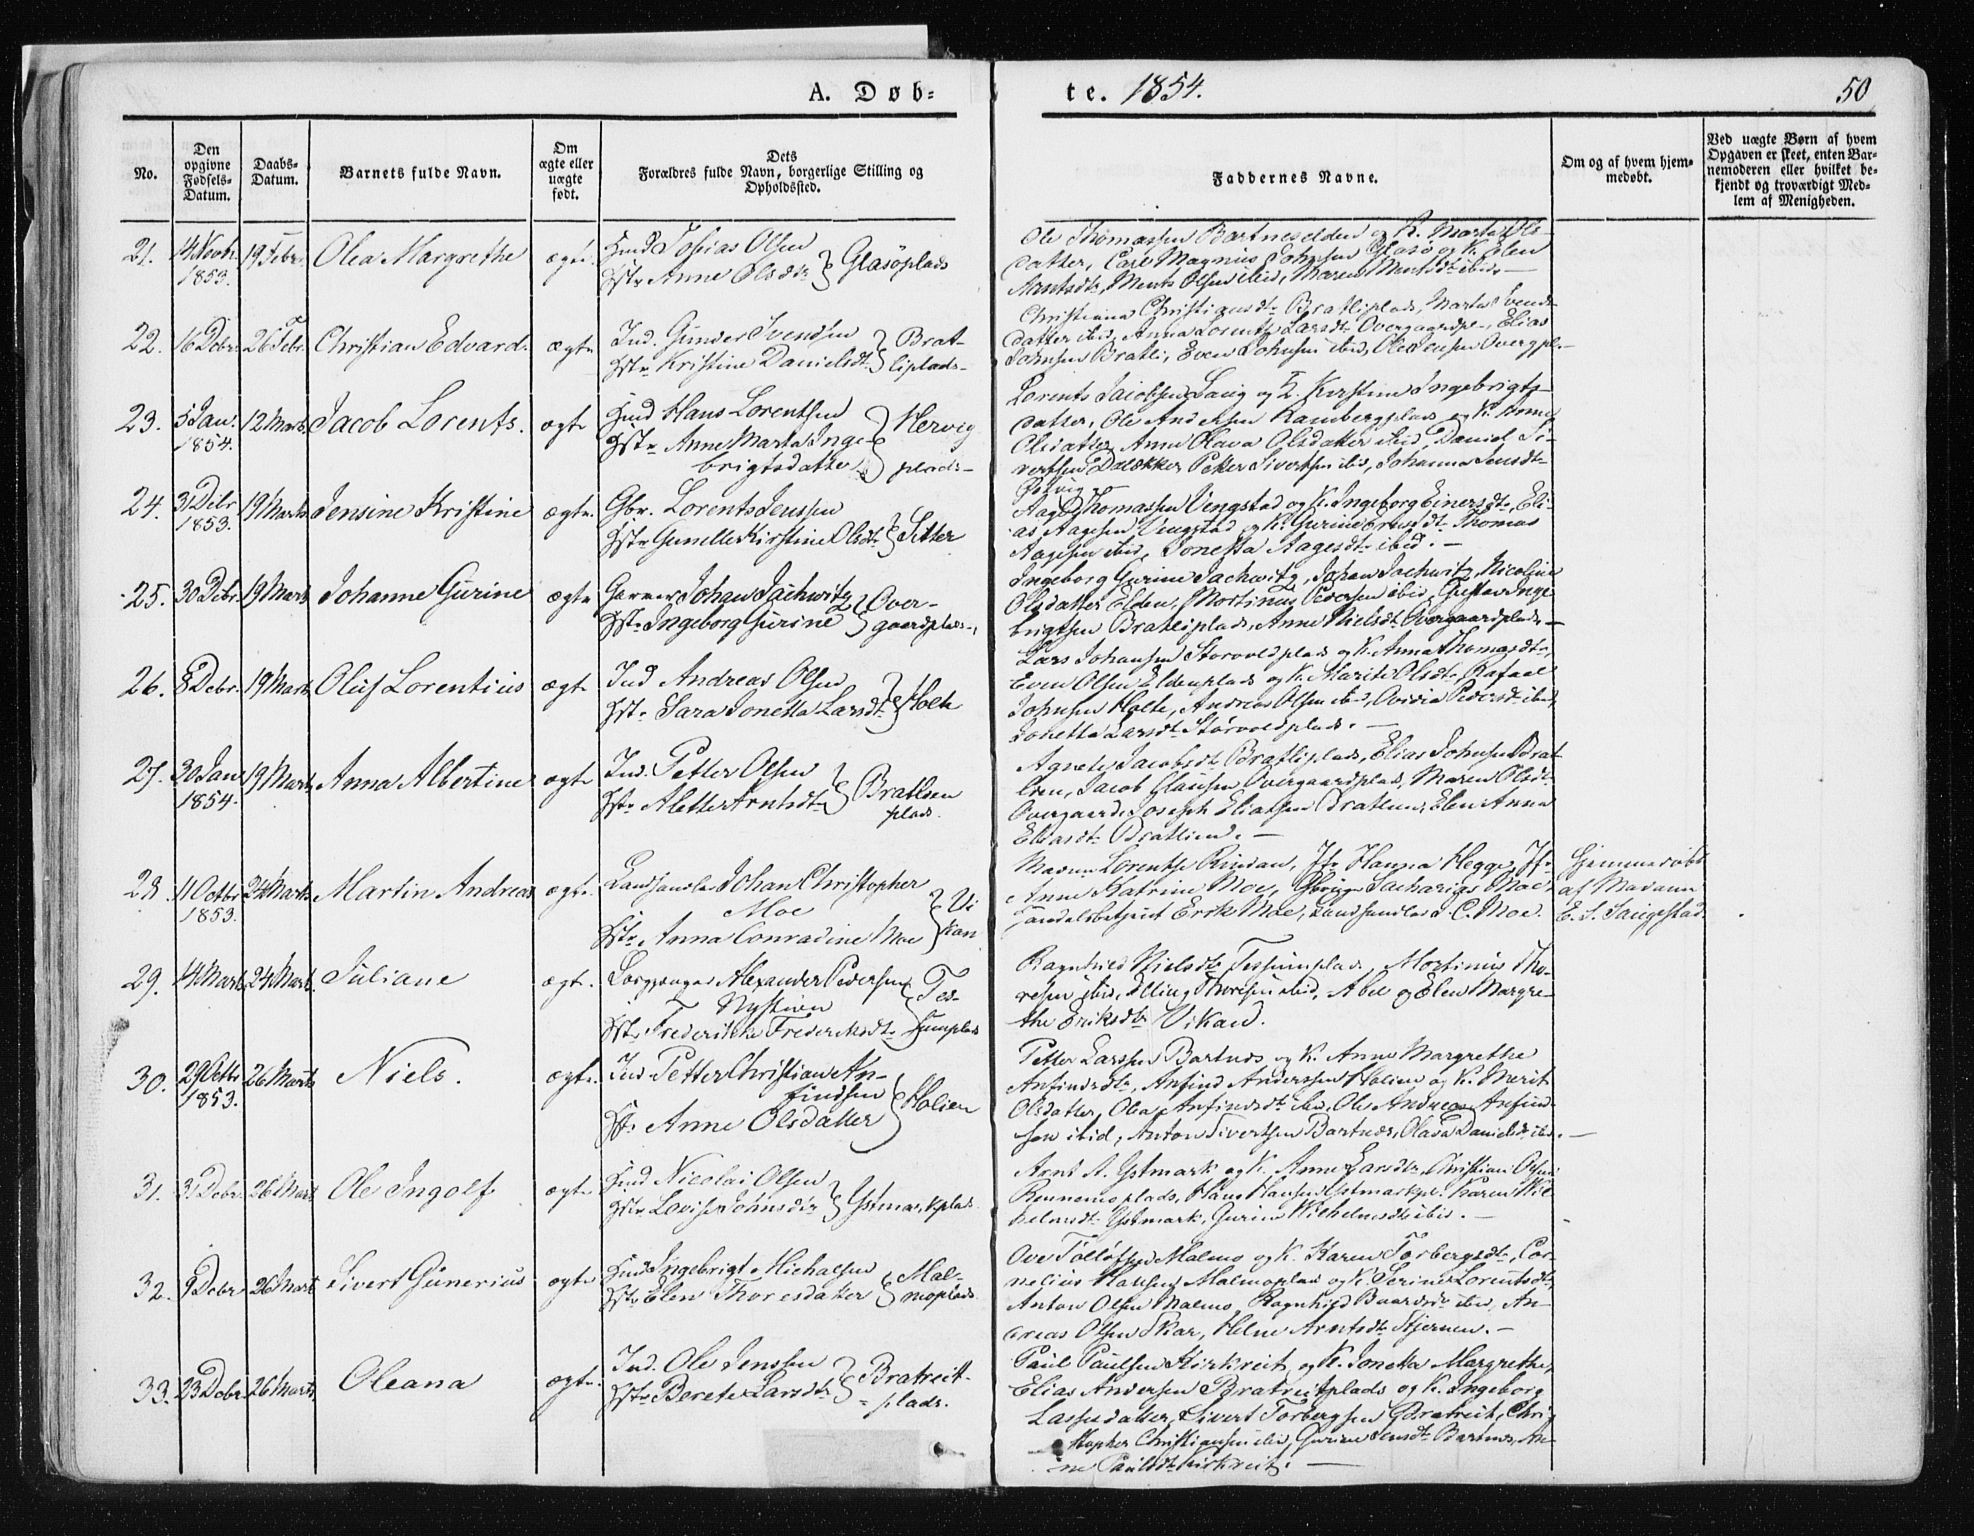 A. Døb=
te. 1854.
50
No.
Den opgivne Fødsels-Datum.
Daabs-Datum.
Barnets fulde Navn.
Om ægte eller uægte født.
Dets Forældres fulde Navn, borgerlige Stilling og Opholdssted.
Faddernes Navne.
Om og af hvem hjemmedøbt.
Ved uægte Børn af hvem Opgaven er skeet, enten Barnemoderen eller hvilket bekjendt og troværdigt Medlem af Menigheden.
21. 14 Novb. 1853. 19 Febr. Olea Margrethe ægte.
Tobias Olsen
Anne Olsdtr } Glasöplads
Ole Thomassen Bartneselden og K. Marta Ols-
datter, Carl Magnus Johnsen Glasö og K. Elen
Arntsdtr, Ments Olsen ibid, Maren Mortsdtr ibid. —
22. 16 Debr. 26 Febr. Christian Edvard. ægte
Ind. Gunder Svendsen
Hstr Kristine Danielsdtr } Brat-
liplads
Christiana Christiansdtr Bratliplads, Marta Svends-
datter ibid, Anna Lorentse Larsdtr Overgaardpl., Elias
Johnsen Bratli, Even Johnsen ibid, Ole Jensen Overgpl. —
23. 5 Jan. 1854. 12 Marts Jacob Lorents. ægte
Hans Lorentsen
Hstr Anne Marta Inge-
brigtsdatter } Hervig
plads
Lorents Jacobsen Saug og K. Kirstine Ingebrigts-
datter, Ole Andersen Rambergplads og K. Anne
Olsdatter, Anne Olava Olsdatter ibid, Daniel Si-
vertsen Dalækker, Petter Sivertsen ibid, Johanna Jensdtr
24. 31 Debr 1853. 19 Marts Jensine Kristine ægte.
Gbr. Lorents Jenssen
Hstr Gunelle Kirstine Olsdtr } Sitter
Aage Thomassen Vengstad og K. Ingeborg Einersdtr, Eli-
as Aagesen Vengstad og K. Gurine Thomas
Aagesen ibid, Jonetta Aagesdtr ibid. —
25. 30 Debr. 19 Marts Johanne Gurine ægte
Garver Johan Jachwitz
Hstr Ingeborg Gurine } Over-
gaardplads
Ingeborg Gurine Jachwitz, Johan Jachwitz, Nicoline
Olsdatter Elden, Mortinus Pedersen ibid, Gustav Inge-
brigtsen Bratliplads, Anne Nielsdtr Overgaardplads —
26. 8 Debr. 19 Marts Oluf Lorentius ægte
Ind Andreas Olsen
Hstr Sara Jonetta Larsdtr } Holte
Lars Johansen Storvoldplads og K. Anna Thomasdtr,
Even Olsen Eldenplads og K. Marit Olsdtr, Rafael
Johnsen Holte, Andreas Olsen ibid, Ovidia Pedersdtr ibid,
Jonetta Larsdtr Storvoldplads. —
27. 30 Jan 1854. 19 Marts Anna Albertine ægte
Ind. Petter Olsen
Hstr Alette Arntsdtr } Bratlien
plads.
Agnete Jacobsdtr Bratliplads, Elias Johnsen Brat-
lien, Jacob Olausen Overgaardplads, Maren Olsdtr
Overgaard, Joseph Eliassen Bratlien, Elen Anna
Eliasdtr Bratlien. —
28. 11 Octbr 1853. 24 Marts Martin Andreas ægte.
Landhandler Johan Christopher
Moe
Hstr Anna Conradine Moe } Vi
kan
Madam Lorentse Rindan, Jfr Hanna Hegge, Jfr
Anne Katrine Moe, Sacharias Moe,
Handelsbetjent Erik Moe, Landhandler J. C. Moe.
Hjemmedöbt
af Madame
E. S. Saugestad
29. 14 Marts 24 Marts. Juliane ægte.
Alexander Pedersen
Nystuen
Hstr Frederikke Frederiksdtr } Tes-
sumplads
Ragnhild Nielsdtr Tessumplads, Mortinus Tho-
resen ibid, Elling Thoresen ibid, Abel og Elen Margre-
the Eriksdtr Vikan.
30. 29 Octbr 1853. 26 Marts Niels. ægte.
Ind Petter Christian An-
findsen
Hstr Anne Olsdatter } Holien
Petter Larssen Bartnes og K. Anne Margrethe
Anfindsdtr, Anfind Anderssen Holien og K. Merit
Olsdatter, Olea Anfindsdtr ibid, Ole Andreas Anfind-
sen ibid, Anton Sivertsen Bartnes, Olava Danielsdtr ibid. —
31. 31 Debr. 26 Marts Ole Ingolf ægte
Nicolai Olsen
Hstr Lovise Johnsdtr } Ystmarkplads
Arnt A. Ystmark og K. Anne Larsdtr, Christian Olsen
Rennemoplads, Hans Hansen Ystmarkpl. Karen Wil-
helmsdtr Ystmark, Gurine Wilhelmsdtr ibid. —
32. 9 Debr 26 Marts Sivert Gunerius ægte
Ingebrigt Michalsen
Hstr Elen Thoresdatter } Mal-
moplads
Ove Tolløfsen Malmo og K. Karen Torbergsdtr, Cor-
nelius Hansen Malmoplads og K. Serine Lorentsdtr,
Anton Olsen Malmo, Ragnhild Baardsdtr ibid, An-
dreas Olsen Skar, Heline Arntsdtr Stjernen. —
33. 23 Debr 26 Marts Oleana ægte.
Ind. Ole Jenssen
Hstr Berete Larsdtr } Bratreit-
plads.
Paul Paulsen Kirkreit og K. Jonetta Margrethe,
Elias Andersen Bratreitplads og K. Ingeborg
Lassedatter, Sivert Torbergsen Bratreit, Chri-
stopher Christiansen ibid, Gurine Jensdtr Bartnes, An-
ne Paulsdtr Kirkreit. —